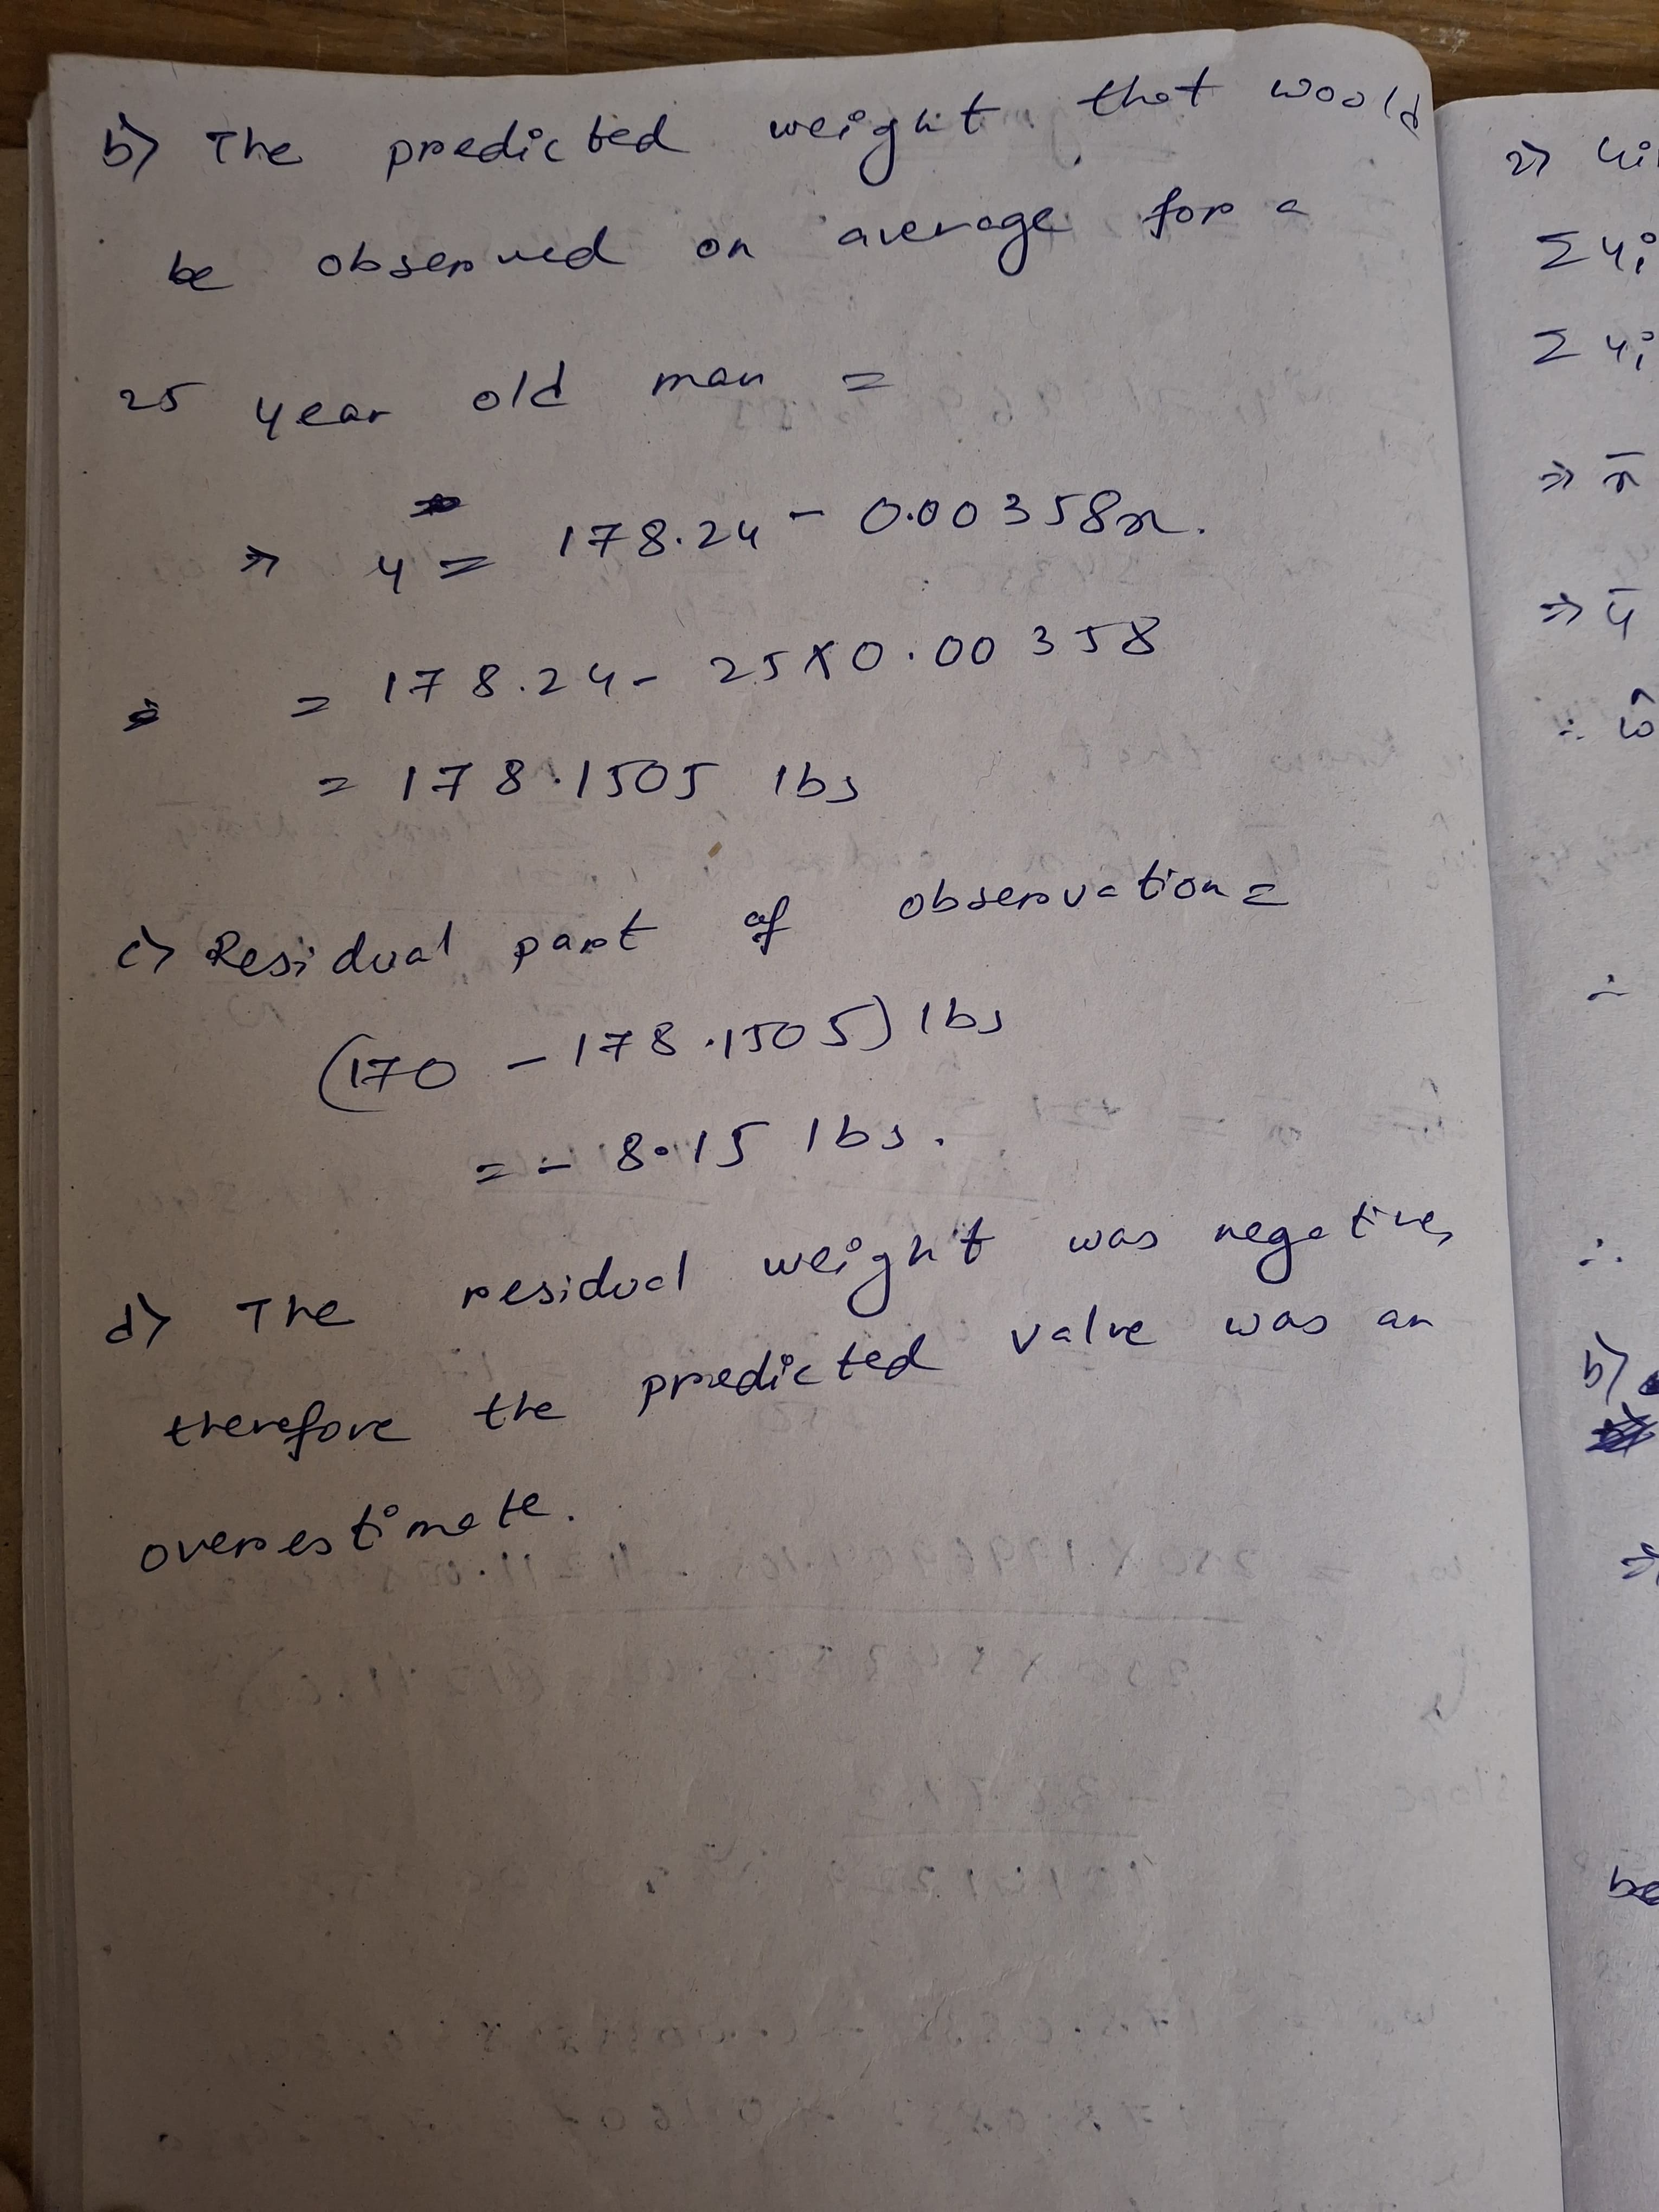 b) The predicted weight that woold
be observed on average for a
25 year old man =
⇒ y = 178.24 - 0.00358x.
= 178.24 - 25×0.00358
= 178.1505 lbs
c) Residual part of observation =
(170 - 178.1505) lbs
= - 8.15 lbs.
d) The residual weight was negative,
therefore the predicted value was an
overestimate.
2)
Σyi
Σyi
⇒ x̄
⇒ ȳ
∴
∴
∴
b)
⇒
be